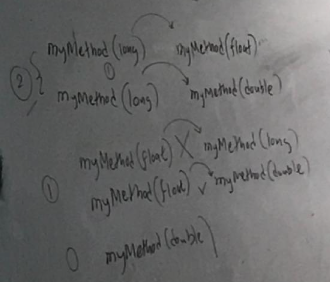 myMethod(long) myMethod(float)
① 
② { myMethod(long) myMethod(double)
myMethod(float) X myMethod(long)
① myMethod(float) ✓ myMethod(double)
0 myMethod(double)